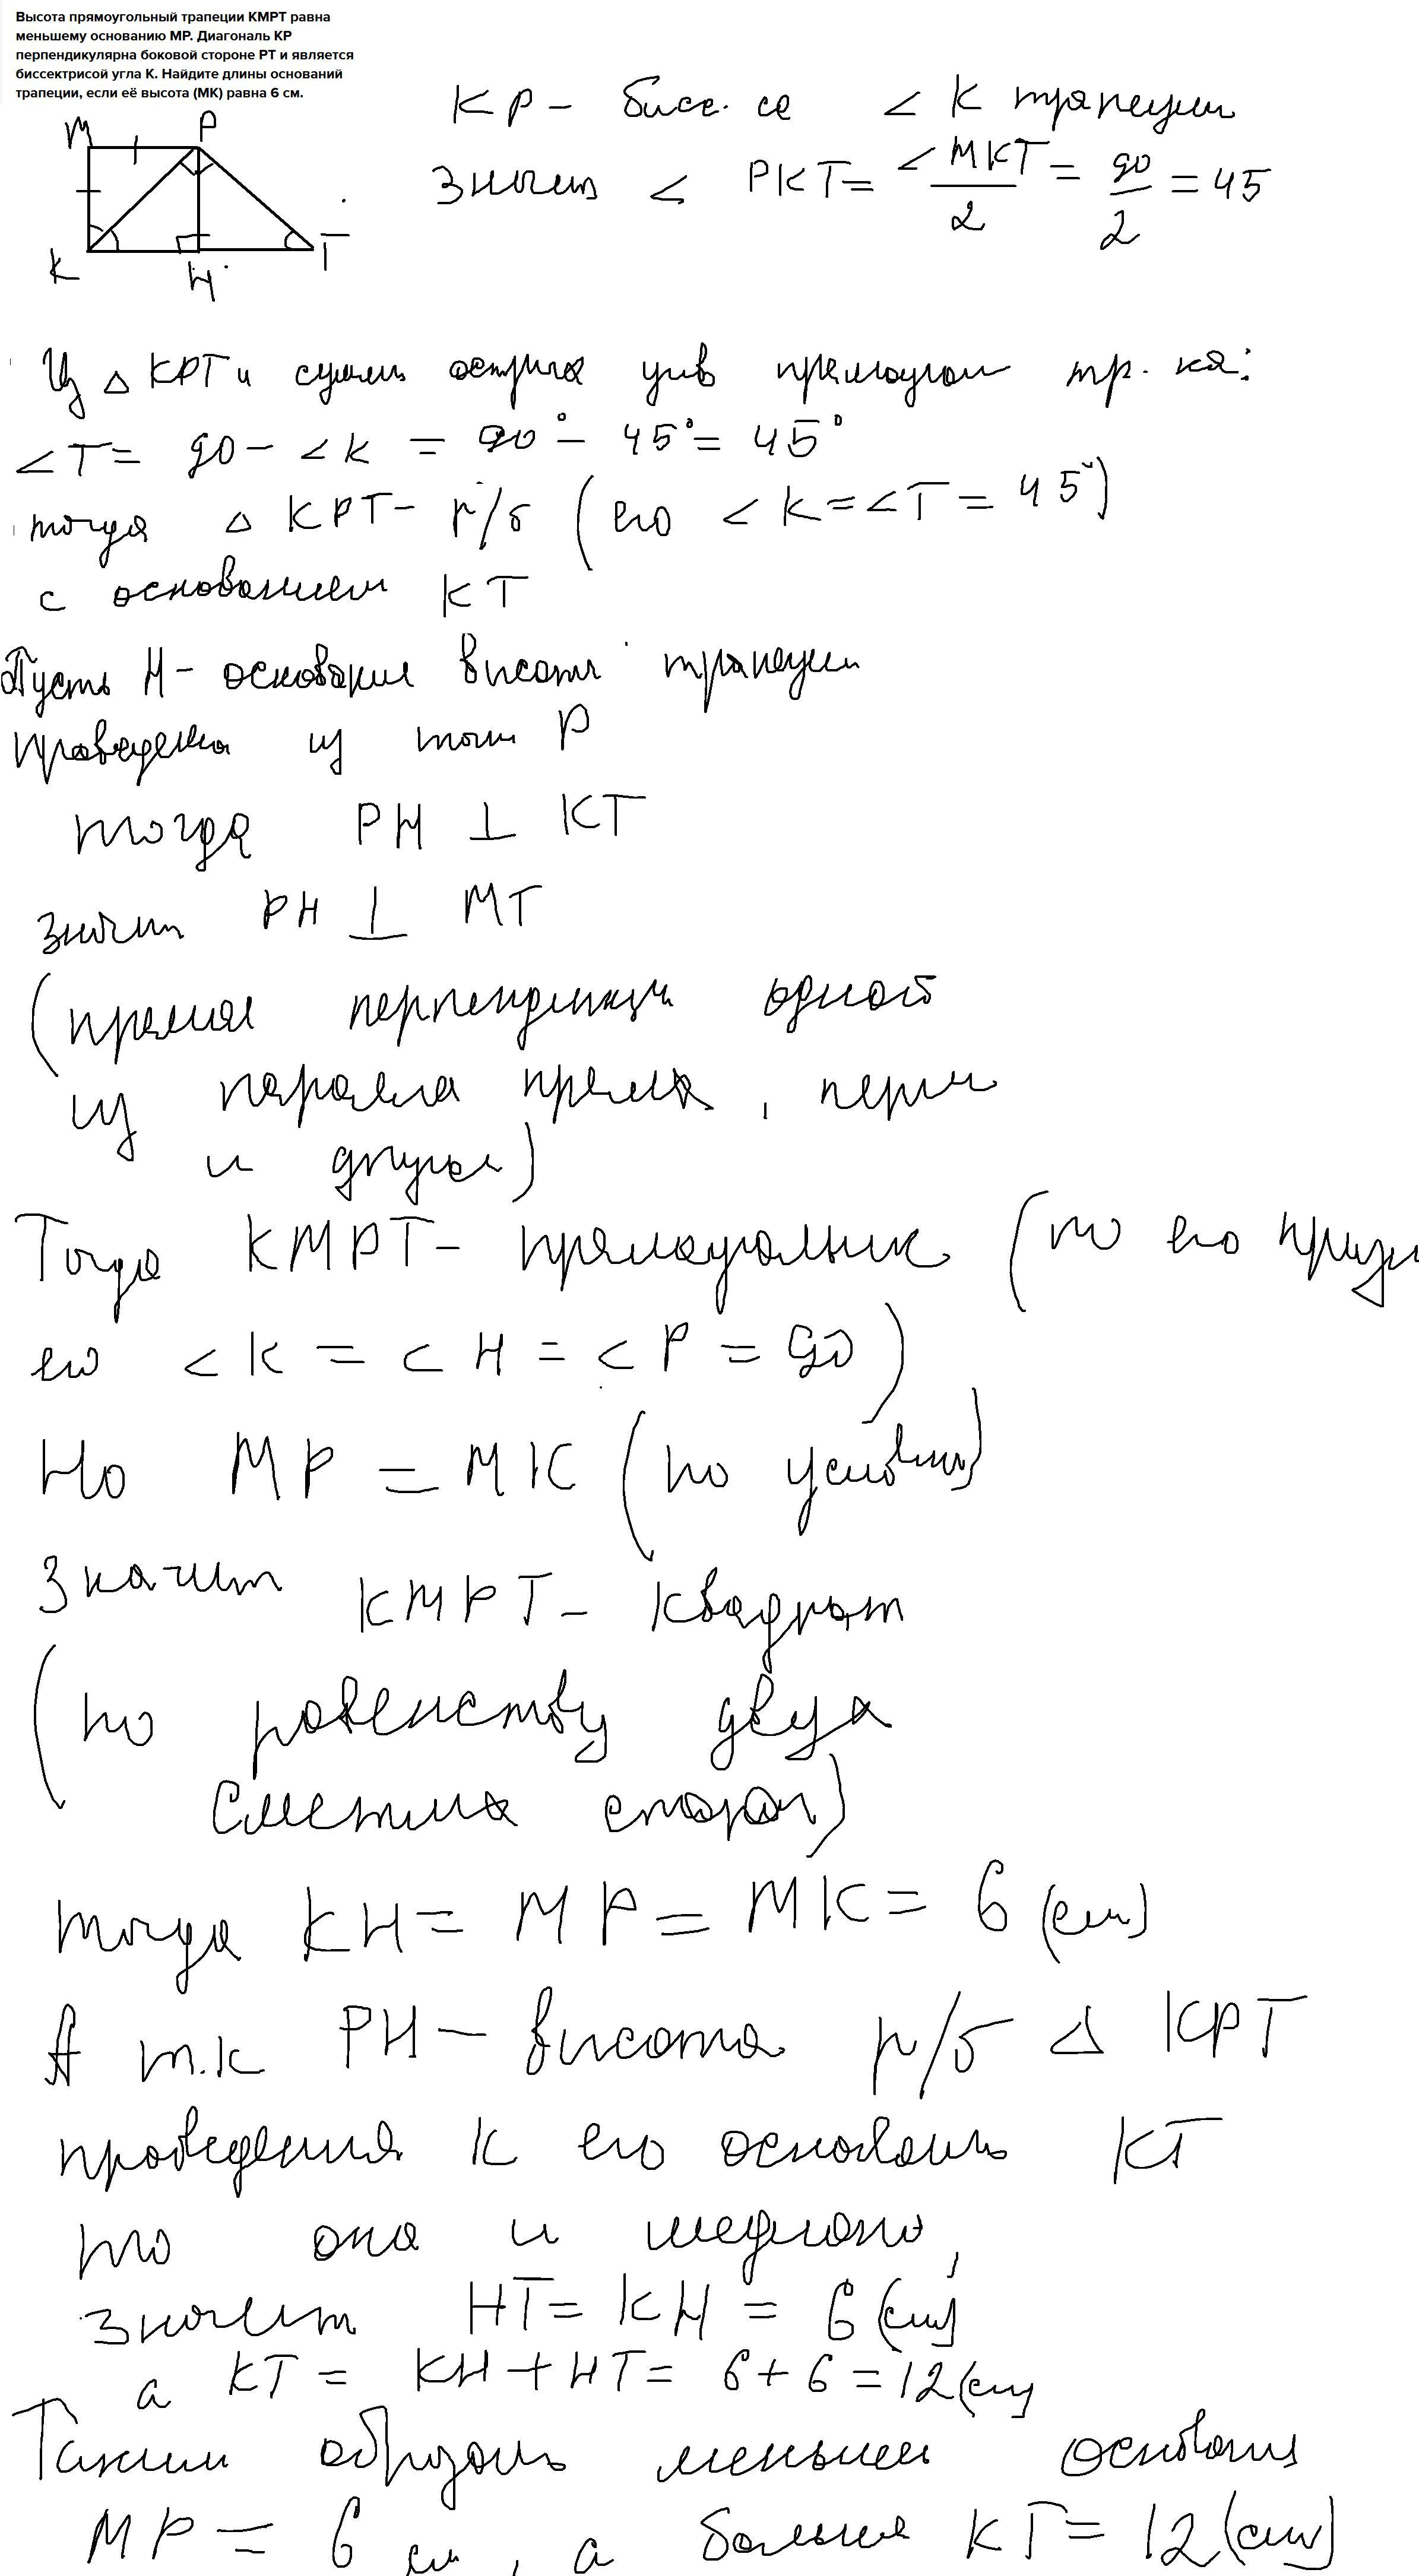 Высота прямоугольный трапеции КМРТ равна
меньшему основанию МР. Диагональ КР
перпендикулярна боковой стороне РТ и является
биссектрисой угла К. Найдите длины оснований
трапеции, если её высота (МК) равна 6 см.
M P
K H T
КР - бисс. са < К трапеции
Значит < РКТ = <МКТ/2 = 90/2 = 45
Из △ КРТ и суммы острых угв прямоугол тр. ка:
<T = 90 - <K = 90° - 45° = 45°
тогда △ КРТ - р/б (его <К = <Т = 45°)
с основанием КТ
Пусть Н - основание высоты трапеции
проведена из точки Р
тогда РН ⊥ КТ
значит РН ⊥ МТ
(прямая перпендикул одной
из паралл прямых, перп
и другой)
Тогда КМРТ - прямоугольник (по его призн
его <К = <Н = <Р = 90)
Но МР = МК (по условию)
Значит КМРТ - квадрат
(по равенству двух
смежных сторон)
тогда КН = МР = МК = 6 (см)
А т.к РН - высота р/б △ КРТ
проведенная к его основань КТ
то она и медиана,
значит НТ = КН = 6 (см)
а КТ = КН + НТ = 6 + 6 = 12 (см)
Таким образом меньшее основания
МР = 6 см, а больше КТ = 12 (см)